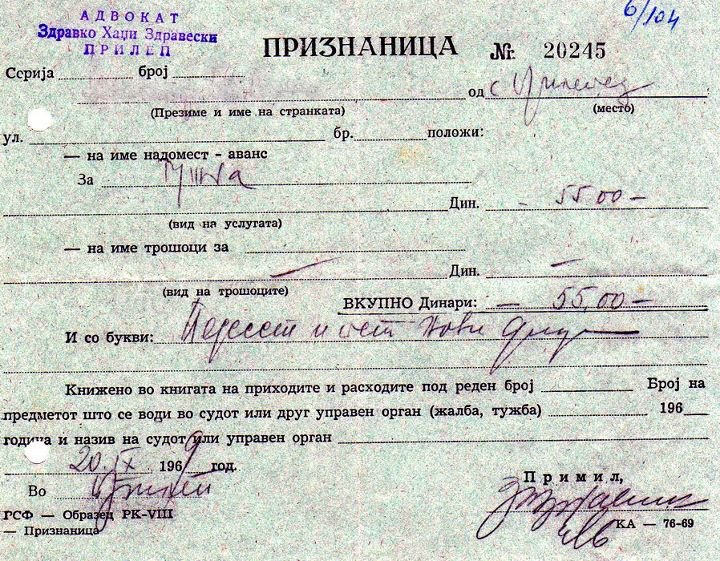 АДВОКАТ
Здравко Хаџи Здравески
ПРИЛЕП
6/104
ПРИЗНАНИЦА № 20245
Серија број
од с.
(Презиме и име на странката) (место)
ул. бр. положи:
— на име надомест - аванс
За
Дин. - 55,00 -
(вид на услугата)
— на име трошоци за
Дин. —
(вид на трошоците)
ВКУПНО Динари: - 55,00 -
И со букви: Педесет и пет нови
Книжено во книгата на приходите и расходите под реден број Број на
предметот што се води во судот или друг управен орган (жалба, тужба) 196
година и назив на судот или управен орган
20. IX 1969 год.
Примил,
Во Прилеп
РСФ — Образец РК-VIII
КА — 76-69
— Признаница